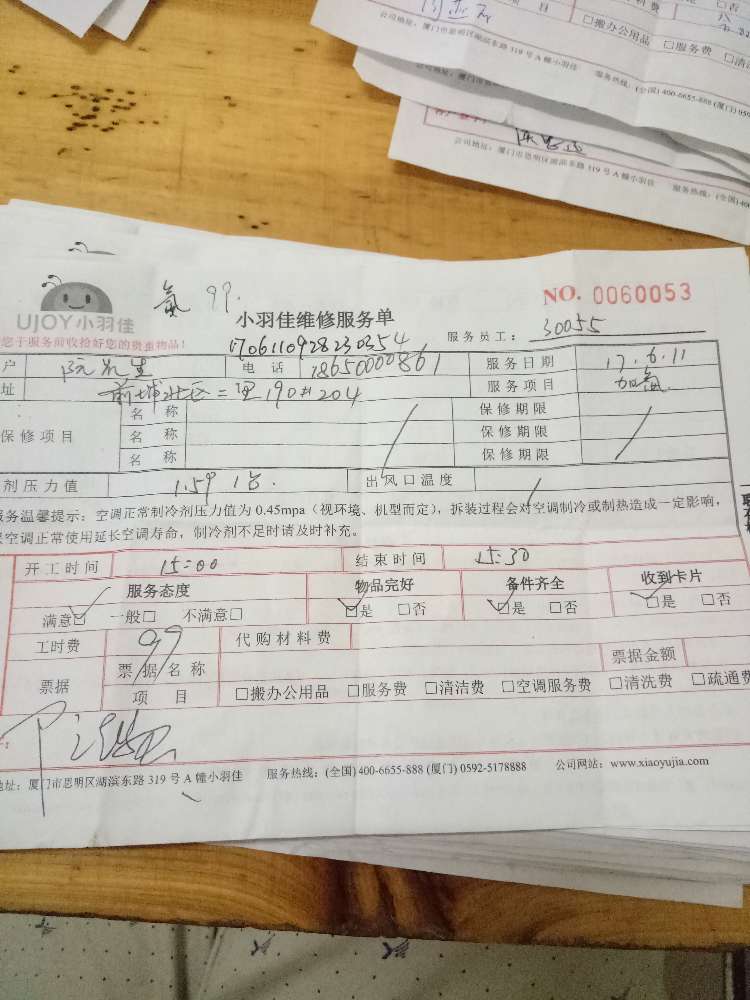 项 目 □搬办公用品 □服务费 □清洁
公司地址:厦门市思明区湖滨东路 319 号 A 幢小羽佳 服务热线:(全国) 400-6655-888 (厦门) 0592
公司地址:厦门市思明区湖滨东路 319 号 A 幢小羽佳 服务热线:(全国) 400
氟 99.
NO. 0060053
UJOY小羽佳
小羽佳维修服务单
服务员工: 30055
您于服务前收拾好您的贵重物品!
1706110928230354
户 电话 18650000861 服务日期 17.6.11
址 前埔北区二里190#204 服务项目 加氟
保修项目 名 称 保修期限
名 称 保修期限
名 称 保修期限
剂压力值 1.59 1台. 出风口温度
服务温馨提示:空调正常制冷剂压力值为 0.45mpa(视环境、机型而定),拆装过程会对空调制冷或制热造成一定影响,
空调正常使用延长空调寿命,制冷剂不足时请及时补充。
开工时间 15:00 结束时间 15:30
服务态度 物品完好 备件齐全 收到卡片
满意☑ 一般□ 不满意□ ☑是 □否 ☑是 □否 ☑是 □否
工时费 99 代购材料费
票据 票据名称 票据金额
项 目 □搬办公用品 □服务费 □清洁费 □空调服务费 □清洗费 □疏通费
地址:厦门市思明区湖滨东路 319 号 A 幢小羽佳 服务热线:(全国) 400-6655-888 (厦门) 0592-5178888 公司网站:www.xiaoyujia.com